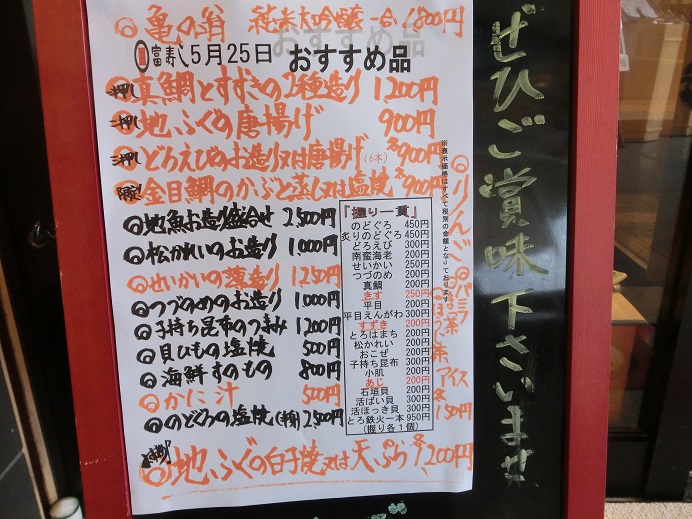 亀の翁 純米大吟醸 一合 1800円
富寿し 5月25日 おすすめ品
一押し 真鯛とすずきの2種造り 1,200円
二押し 地ふぐの唐揚げ 900円
三押し どろえびのお造り又は唐揚げ(6本) 各900円
金目鯛のかぶと蒸し又は塩焼 各900円
地魚お造り盛合せ 2,500円
松かれいのお造り 1,000円
せいかいの薄造り 1,250円
つづのめのお造り 1,000円
子持ち昆布のつまみ 1200円
貝ひもの塩焼 500円
海鮮すのもの 800円
かに汁 500円
のどぐろの塩焼(半身) 2,500円
地ふぐの白子焼又は天ぷら 各1,200円
『握り一貫』
のどぐろ 450円
炙りのどぐろ 450円
どろえび 300円
南蛮海老 200円
せいかい 250円
つづのめ 200円
真鯛 200円
きす 250円
平目 200円
平目えんがわ 300円
すずき 200円
とろはまち 200円
松かれい 200円
おこぜ 200円
子持ち昆布 300円
小肌 200円
あじ 200円
石垣貝 200円
活ばい貝 300円
活ほっき貝 300円
とろ鉄火一本 950円
(握り各1個)
※表示価格はすべて税別の金額となっております
りんご
バニラ
抹茶
ほうじ茶
アイス
各150円
ぜひご賞味下さいませ